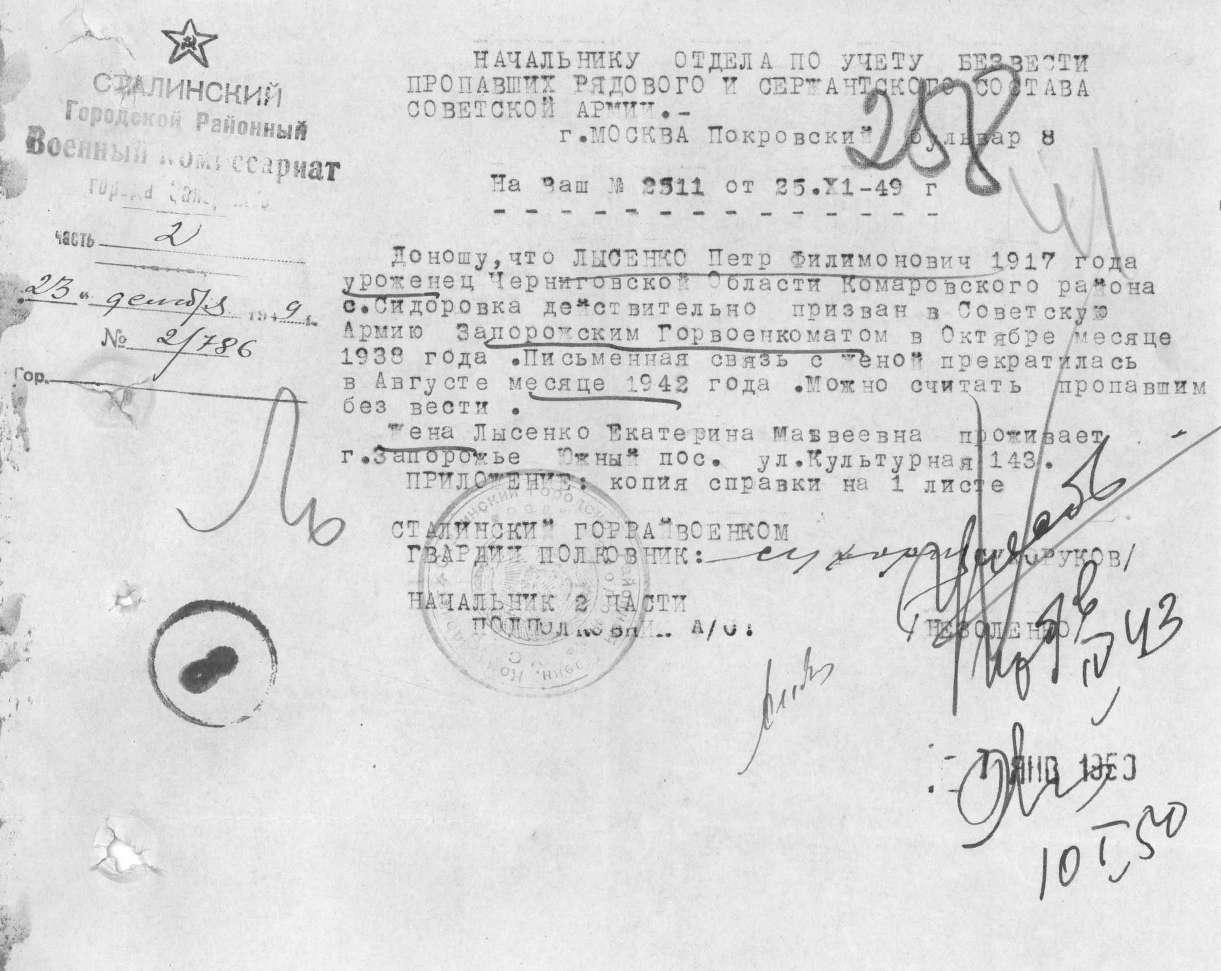 СТАЛИНСКИЙ
Городской Районный
Военный Комиссариат
города
часть 2
23 " декабря 1949 г.
№ 2/786
Гор.
НАЧАЛЬНИКУ ОТДЕЛА ПО УЧЕТУ БЕЗВЕСТИ
ПРОПАВШИХ РЯДОВОГО И СЕРЖАНТСКОГО СОСТАВА
СОВЕТСКОЙ АРМИИ.-
г.МОСКВА Покровский бульвар 8
258
На Ваш № 2511 от 25.X1-49 г
- - - - - - - - - - - - - -
Доношу,что ЛЫСЕНКО Петр Филимонович 1917 года
уроженец Черниговской Области Комаровского района
с.Сидоровка действительно призван в Советскую
Армию Запорожским Горвоенкоматом в Октябре месяце
1938 года .Письменная связь с женой прекратилась
в Августе месяце 1942 года .Можно считать пропавшим
без вести .
Жена Лысенко Екатерина Матвеевна проживает
г.Запорожье Южный пос. ул.Культурная 143.
ПРИЛОЖЕНИЕ: копия справки на 1 листе
СТАЛИНСКИЙ ГОРРАЙВОЕНКОМ
ГВАРДИИ ПОЛКОВНИК:
НАЧАЛЬНИК 2 ЧАСТИ
ПОДПОЛКОВНИК А/С:
43
ЯНВ 1950
10 I 50